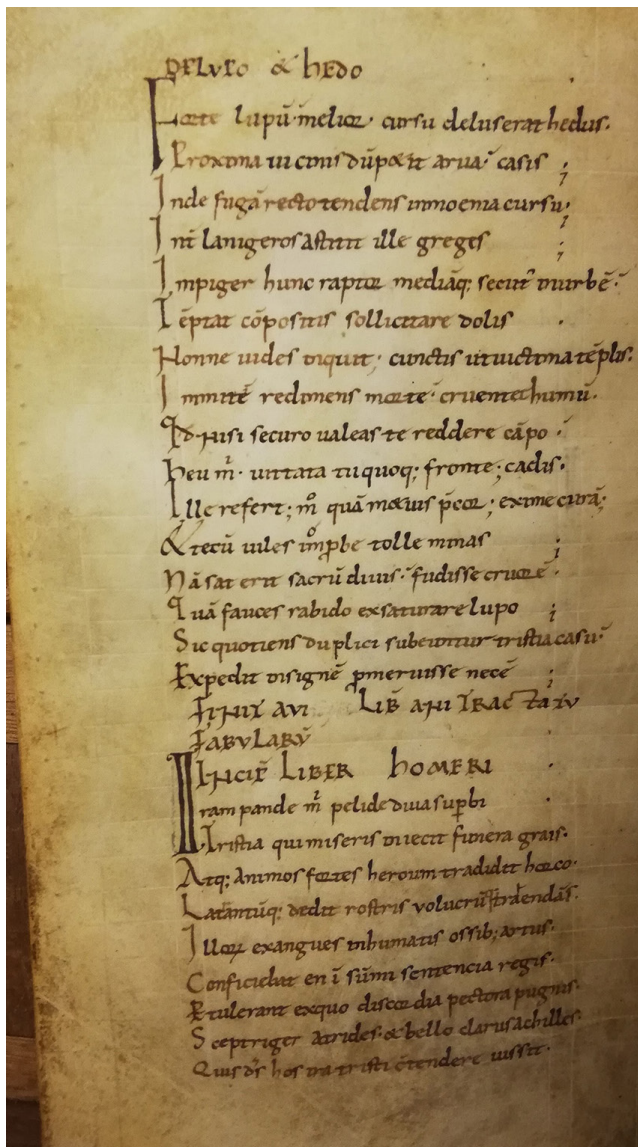 DE LUPO & hEDO
Forte lupū melior cursu deluserat hedus.
Proxima uicinis dū petit arua casis ;
Inde fugā recto tendens inmoenia cursu;
Int̄ lanigeros astitit ille greges
Impiger hunc raptor mediāq; secut' inurbē.
Tēptat cōpositis sollicitare dolis
Nonne uides inquit; cunctis ut uictima tēplis.
Inmitē redimens morte cruentet humū.
Qd nisi securo ualeas te reddere cāpo
heu m̄ uittata tu quoq; fronte; cadis.
Ille refert; m̊ quā metuis p̄cor; exime curā;
& tecū uiles īprobe tolle minas
Nā sat erit sacrū diuis fudisse cruorē
Quā fauces rabido exsaturare lupo ;
Sic quotiens duplici subeuntur tristia casu
Expedit insignē promeruisse necē ;
FINIT AVI LIB ANI TRACTATU
FABULARŪ
INCIP LIBER hOMERI
Iram pande m̄ pelide diua supbi
Tristia qui miseris iniecit funera grais.
Atq; animos fortes heroum tradidit horco.
Latrantūq; dedit rostris volucrūq; trahendās.
Illorū exangues inhumatis ossib; artus.
Conficiebat en ī sūmi sentencia regis.
Etulerant exquo discordia pectora pugnis.
Sceptriger atrides & bello clarus achilles.
Quis ds̄ hos ira tristi cōtendere iussit.